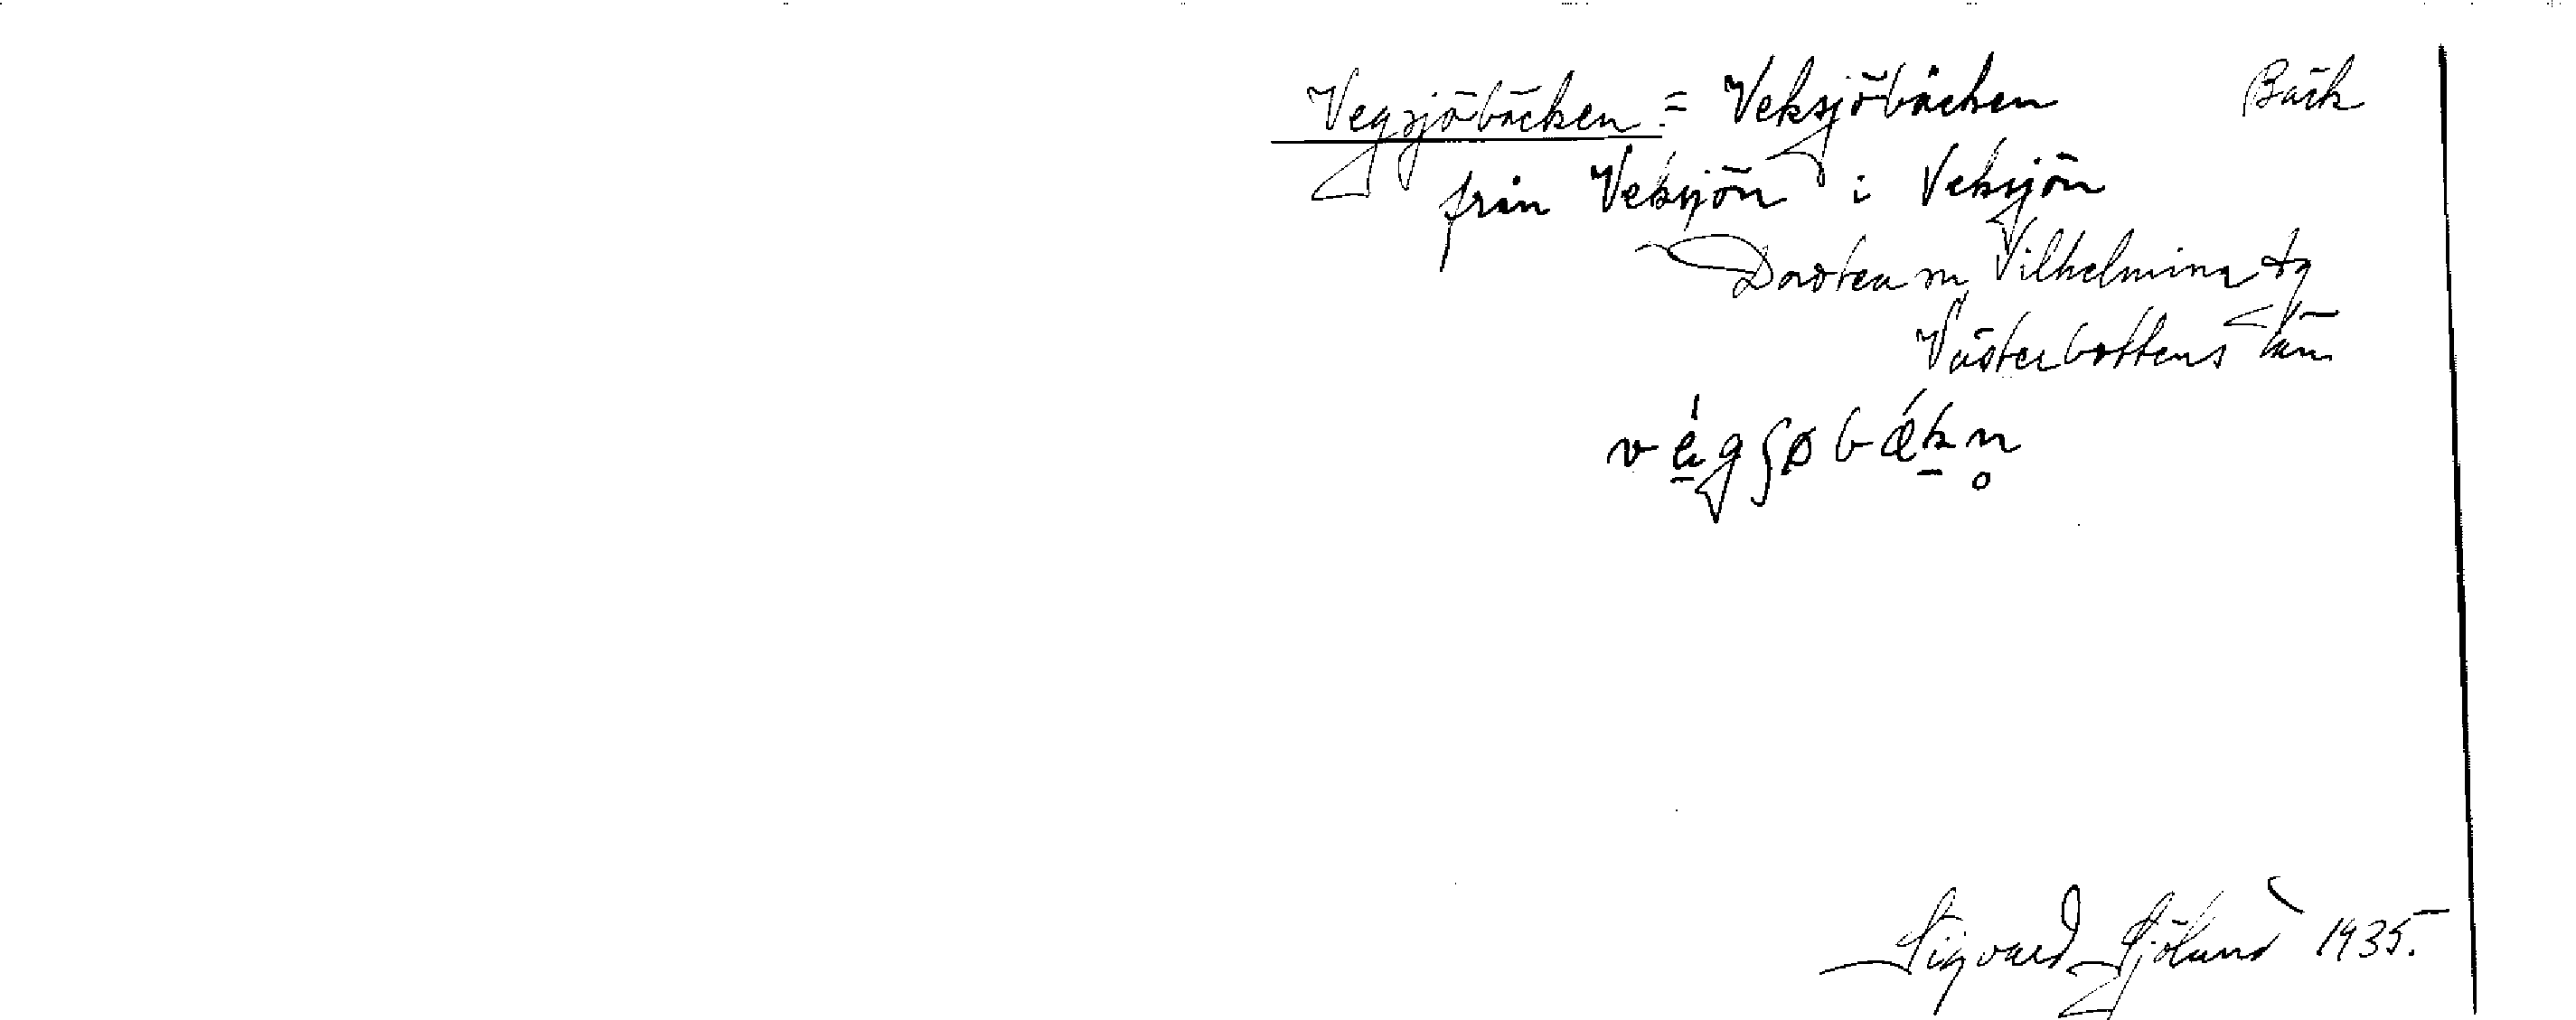 Vegsjöbäcken = Veksjöbäcken Bäck
från Veksjön i Veksjön
Dorotea m. Vilhelmina tg
Västerbottens län
végʃøbǽkn̥
Sigvard Sjölund 1935.